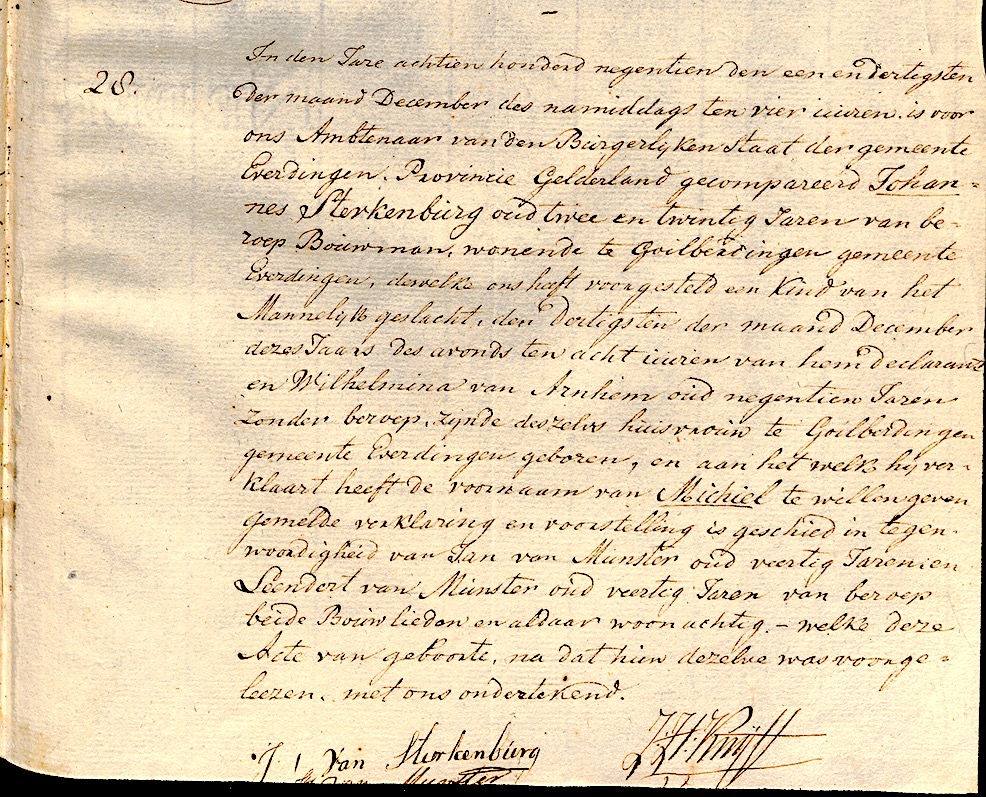 28.
In den Jare achtien honderd negentien den een en dertigsten
der maand December des namiddags ten vier uuren. is voor
ons Ambtenaar van den Burgerlyken Staat der gemeente
Everdingen. Provincie Gelderland gecompareerd Johan=
nes Sterkenburg oud twee en twintig Jaren van be-
roep Bouwman, wonende te Goilberdingen gemeente
Everdingen, dewelke ons heeft voorgesteld een Kind van het
Mannelyk geslacht, den Dertigsten der maand December
dezes Jaars des avonds ten acht uuren van hem declarant
en Wilhelmina van Arnhem oud negentien Jaren
zonder beroep, zynde deszelvs huisvrouw te Goilberdingen
gemeente Everdingen geboren, en aan het welk hy ver-
klaart heeft de voornaam van Michiel te willen geven
Gemelde verklaring en voorstelling is geschied in tegen-
woordigheid van Jan van Munster oud veertig Jaren en
Leendert van Munster oud veertig Jaren van beroep
beide Bouwlieden en aldaar woonachtig. - welke deze
Acte van geboorte, na dat hun dezelve was voorge=
leezen. met ons ondertekend.
J. van Sterkenburg
van Munster